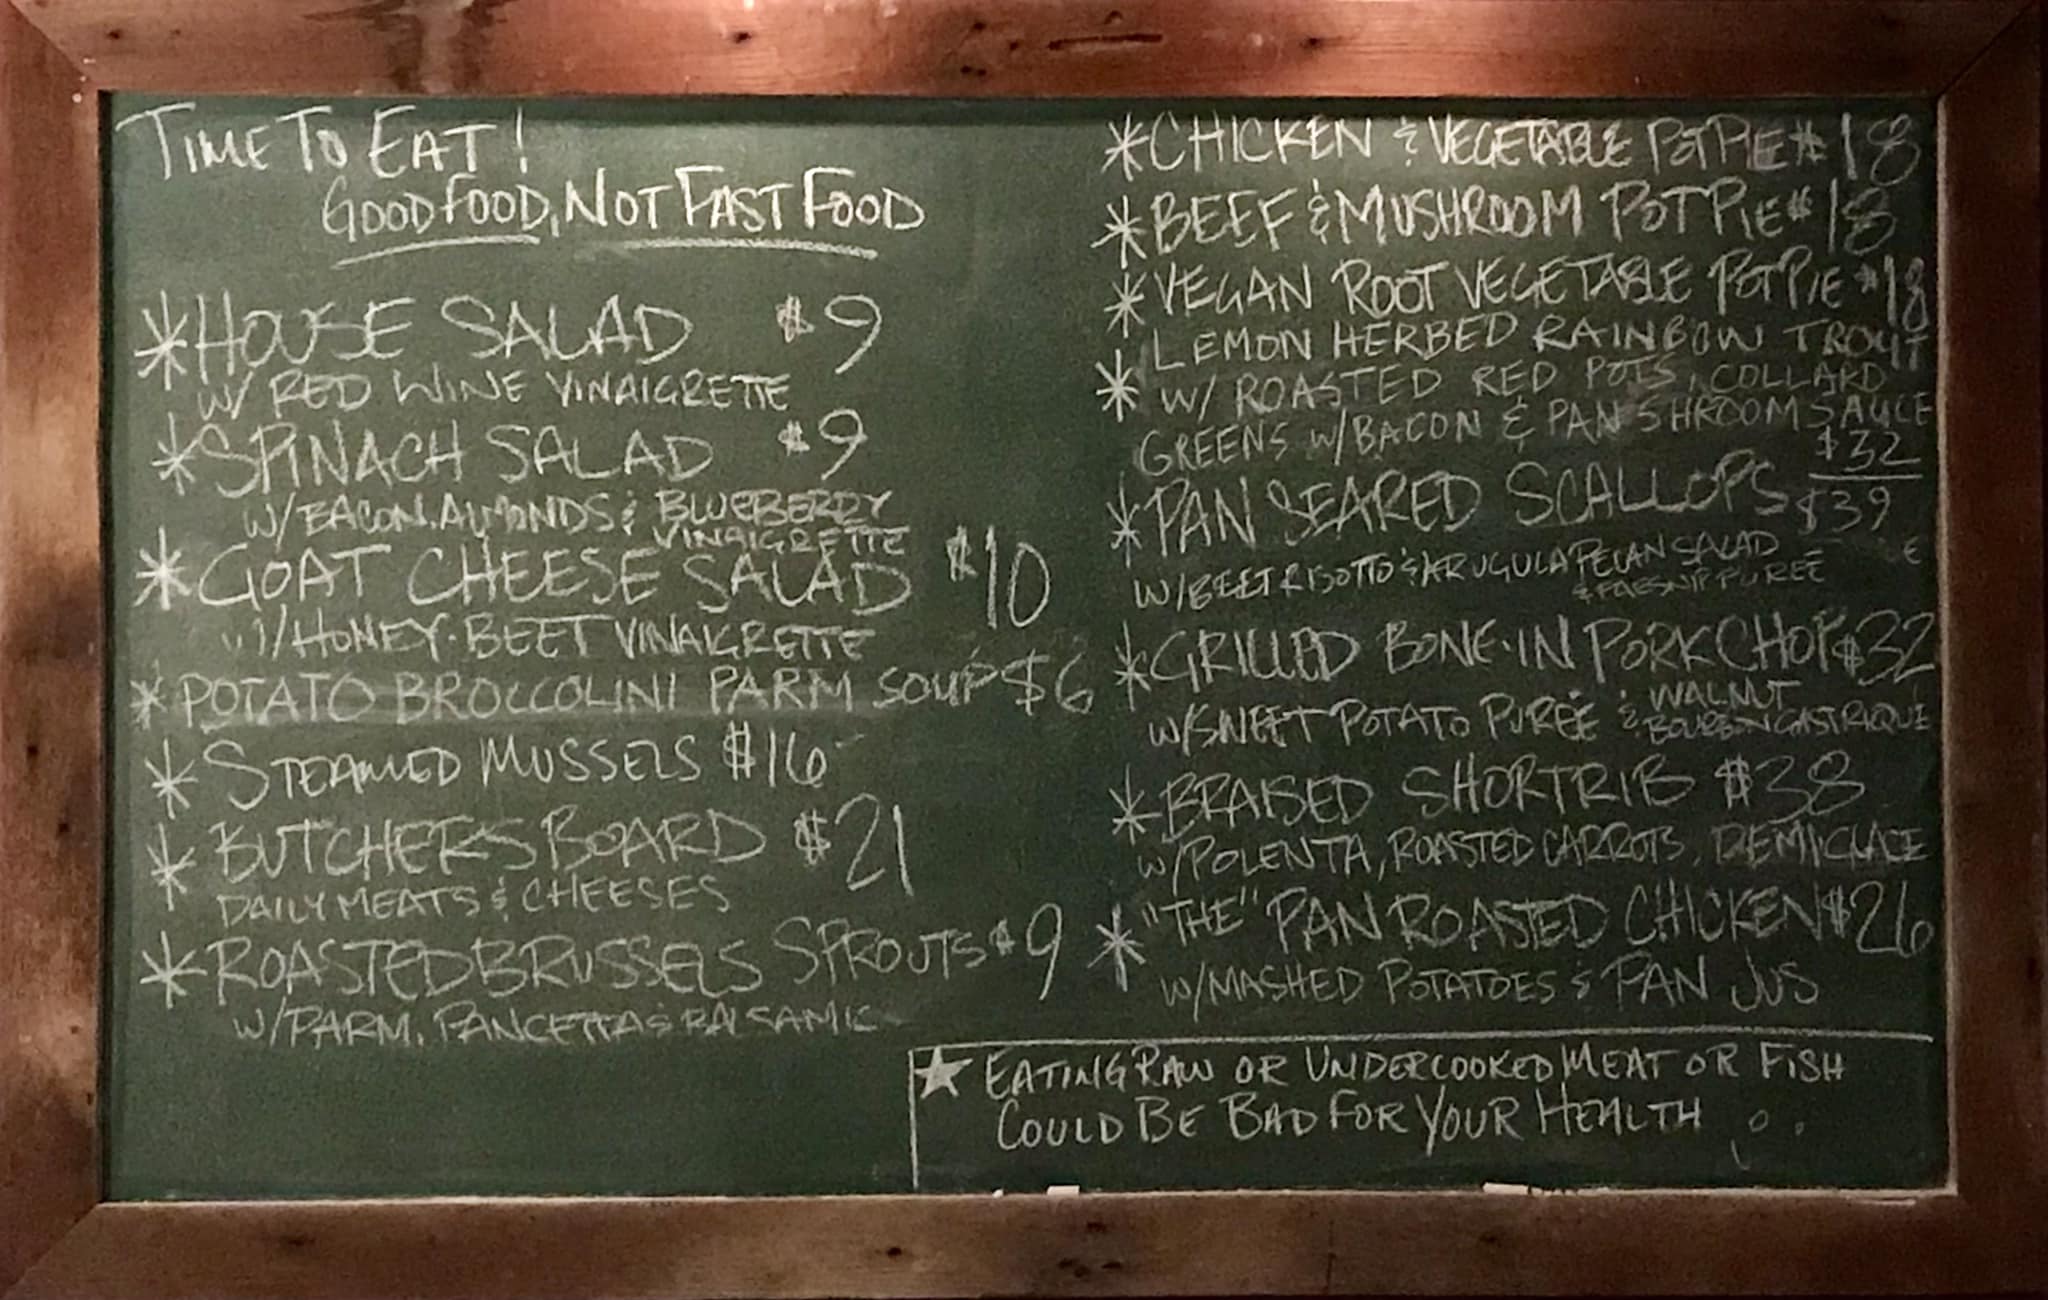 TIME TO EAT!
GOOD FOOD, NOT FAST FOOD
*HOUSE SALAD $9
W/ RED WINE VINAIGRETTE
*SPINACH SALAD $9
W/BACON, ALMONDS & BLUEBERRY
VINAIGRETTE
*GOAT CHEESE SALAD $10
W/HONEY-BEET VINAIGRETTE
*POTATO BROCCOLINI PARM SOUP $6
*STEAMED MUSSELS $16
*BUTCHERS BOARD $21
DAILY MEATS & CHEESES
*ROASTED BRUSSELS SPROUTS $9
W/PARM, PANCETTA & BALSAMIC
*CHICKEN & VEGETABLE POT PIE $18
*BEEF & MUSHROOM POT PIE $18
*VEGAN ROOT VEGETABLE POT PIE $18
*LEMON HERBED RAINBOW TROUT
W/ ROASTED RED POTS, COLLARD
GREENS W/BACON & PAN SHROOM SAUCE
$32
*PAN SEARED SCALLOPS $39
W/BEET RISOTTO & ARUGULA PECAN SALAD
& PARSNIP PURÉE
*GRILLED BONE-IN PORK CHOP $32
W/SWEET POTATO PURÉE & WALNUT
BOURBON GASTRIQUE
*BRAISED SHORTRIB $38
W/POLENTA, ROASTED CARROTS, DEMI GLACE
*"THE" PAN ROASTED CHICKEN $26
W/MASHED POTATOES & PAN JUS
★ EATING RAW OR UNDERCOOKED MEAT OR FISH
COULD BE BAD FOR YOUR HEALTH